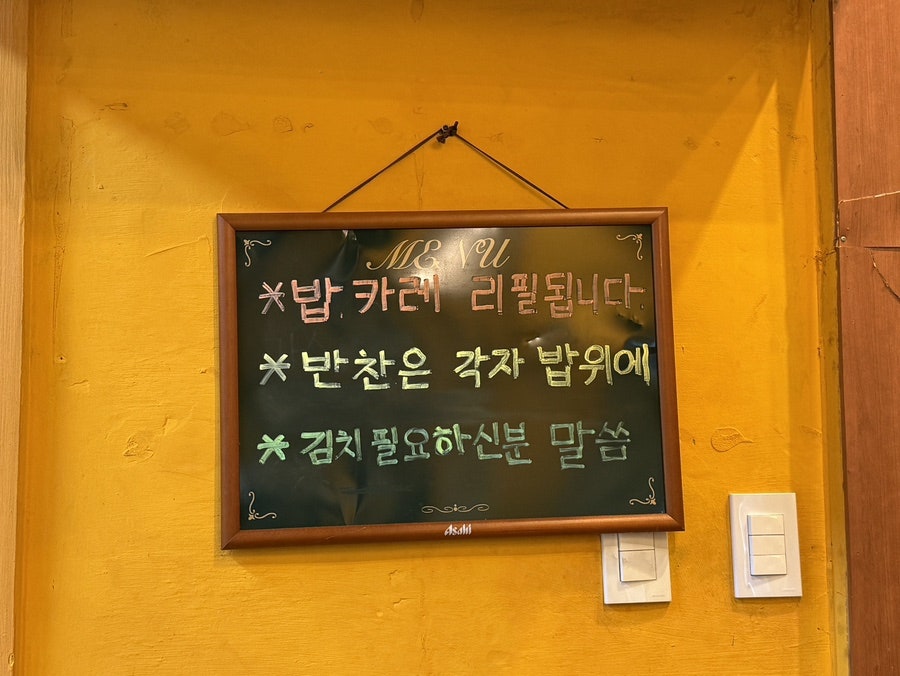 MENU
*밥.카레 리필됩니다.
*반찬은 각자 밥위에
*김치필요하신분 말씀
Asahi